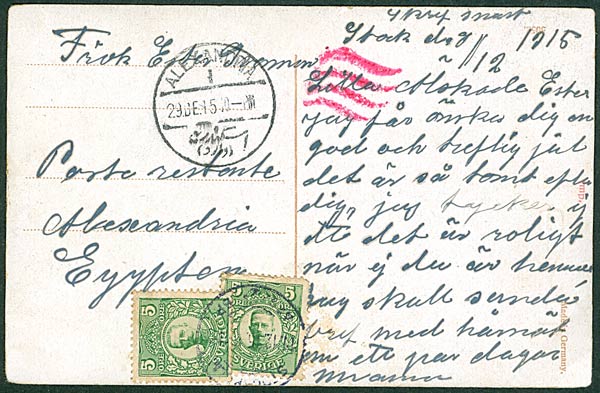 Skref snart
Stock d. 8/12 1915
Frök Ester
ALEXANDRIA
1
29.DE.15
Lilla Älskade Ester
jag får önska dig en
god och treflig jul
det är så tomt efter
dig, jag tycker ej
att det är roligt
när ej du är hemma
jag skall sända
bref med hämåt
om ett par dagar
Mamma
Poste restante
Alexandria
Egypten
5 ÖRE SVERIGE 5
5 SVERIGE 5
Germany.